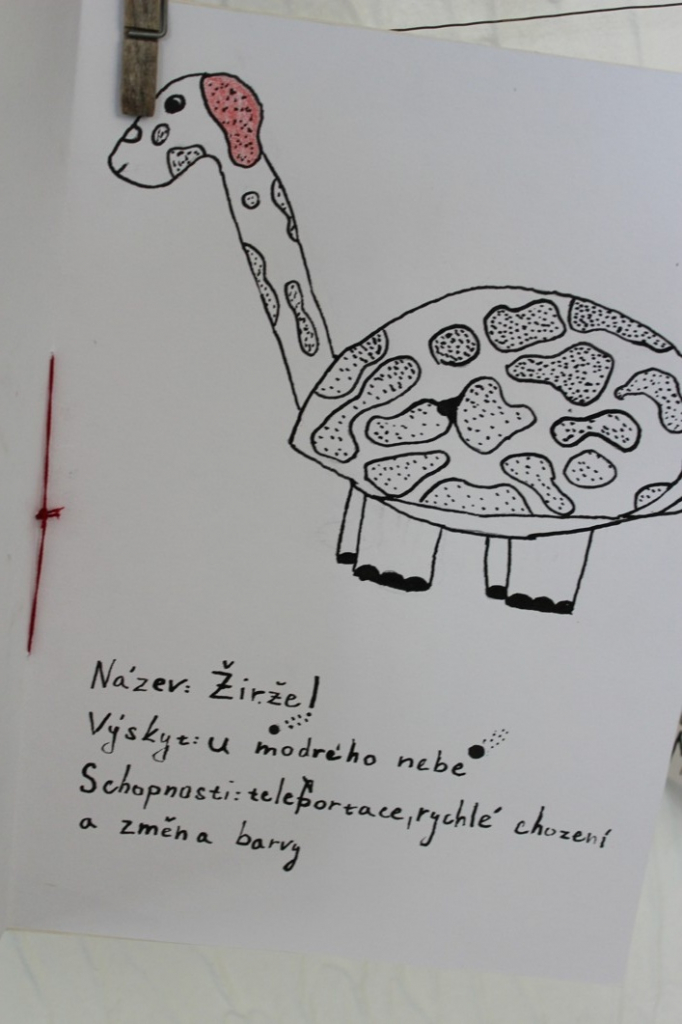 Název: Žirže!
Výskyt: u modrého nebe
Schopnosti: teleportace, rychlé chození
a změna barvy